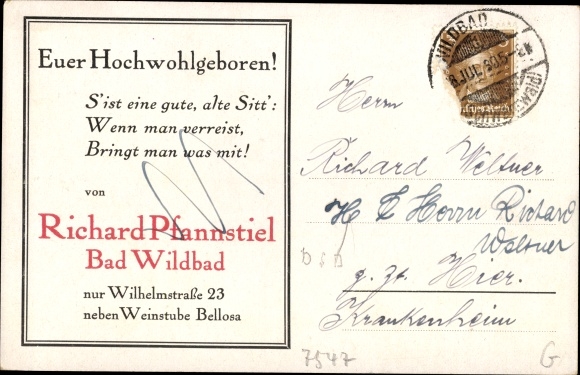 Euer Hochwohlgeboren!
S'ist eine gute, alte Sitt':
Wenn man verreist,
Bringt man was mit!
von
Richard Pfannstiel
Bad Wildbad
nur Wilhelmstraße 23
neben Weinstube Bellosa
WILDBAD
Herrn
Richard Weltner
Herrn Richard
Waltner
z. Zt. Hier.
Krankenheim
7547
G